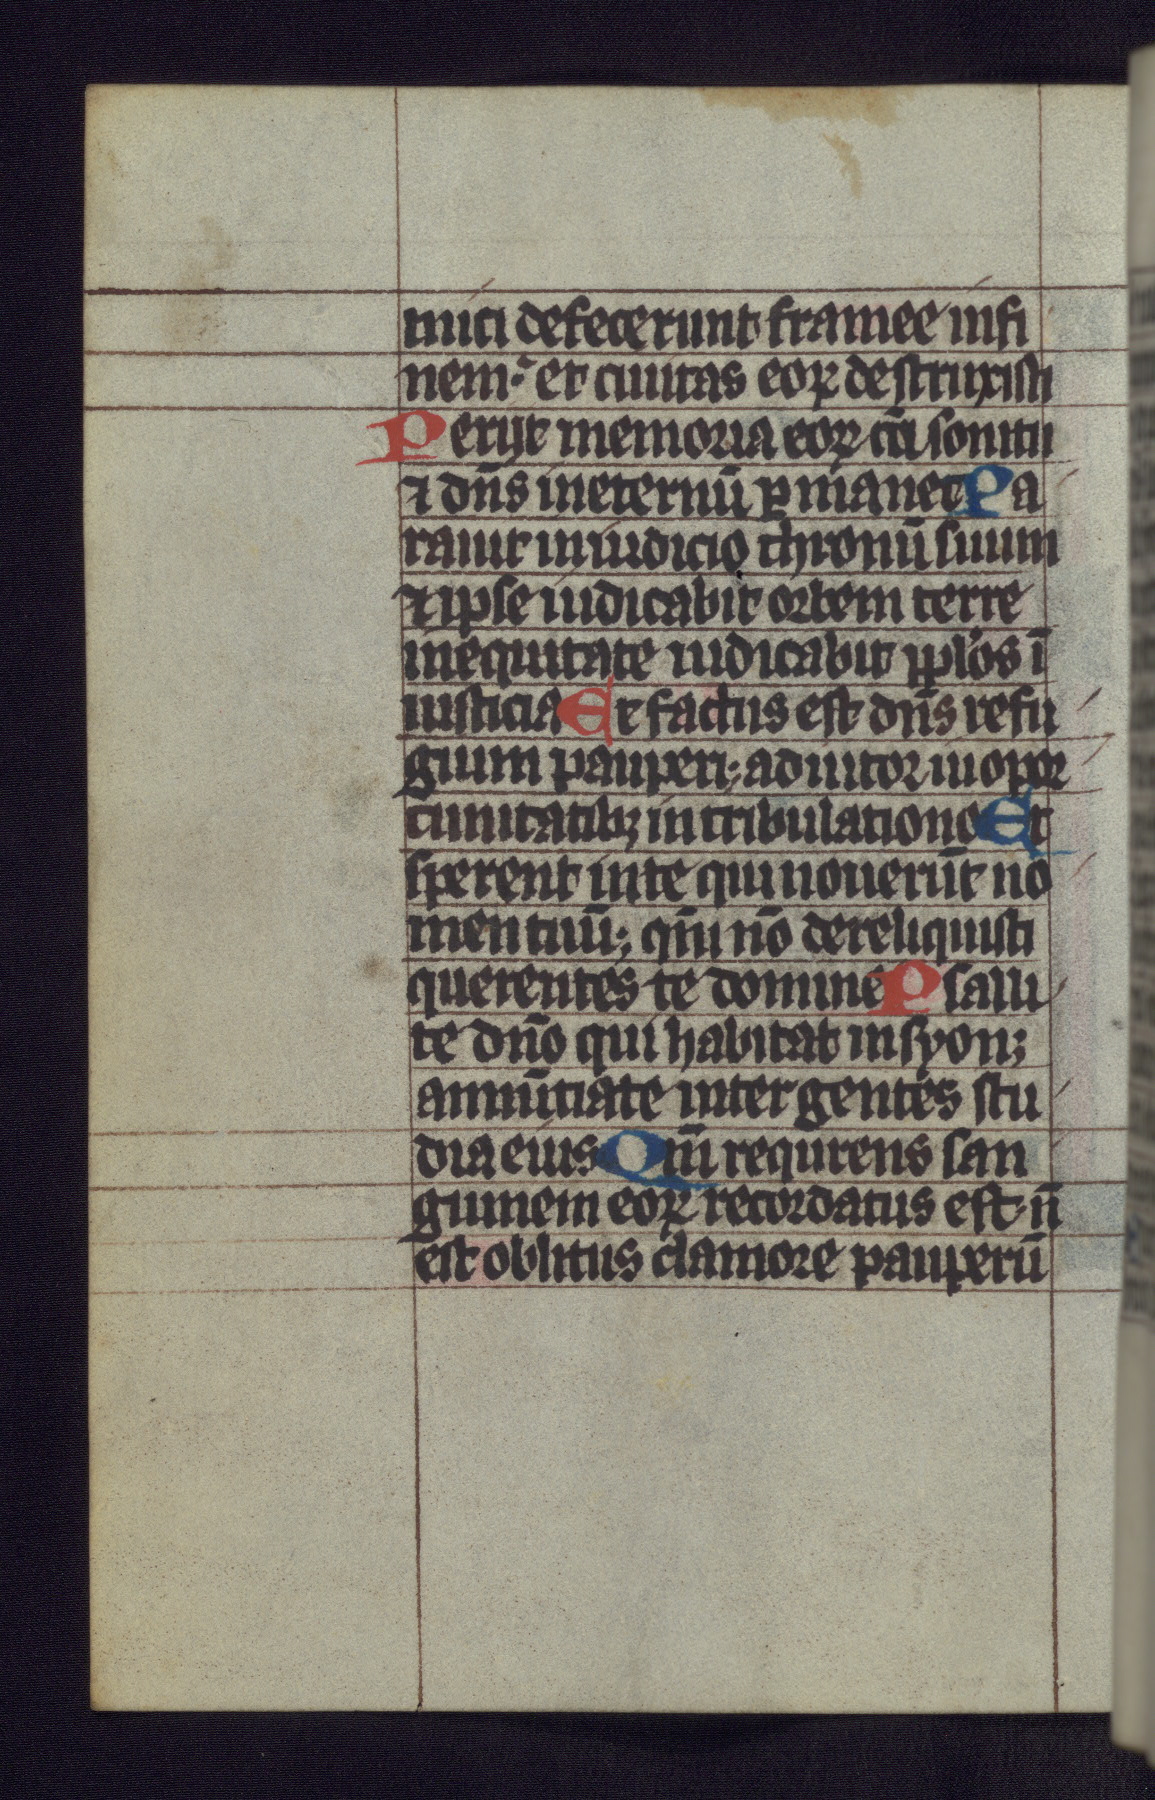 mici defecerunt framee infi
nem· et ciuitas eoꝝ destruxisti
Perijt memoria eoꝝ cū sonitu
⁊ dn̄s ineternū ꝑmanet Pa
rauit iniudicio thronū suum
⁊ ipse iudicabit orbem terre
inequitate iudicabit ppl̄os ī
iusticia Et factus est dn̄s refu
gium pauperi; adiutor inopor
tunitatibꝫ in tribulatione Et
sperent inte qui nouerūt no
men tuū; qm̄ nō dereliquisti
querentes te domine Psalli
te dn̄o qui habitat insyon;
annūtiate inter gentes stu
dia eius Qm̄ requirens san
guinem eoꝝ recordatus est· n̄
est oblitus clamore pauperū